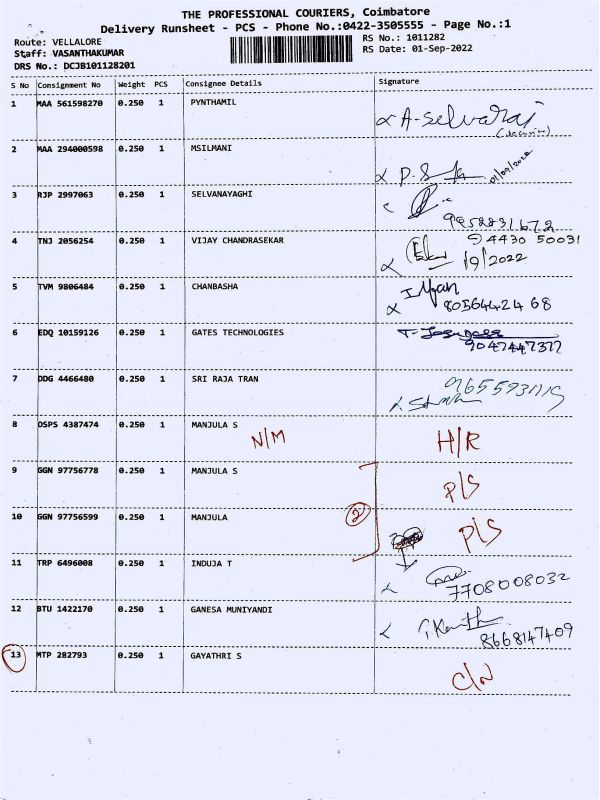 THE PROFESSIONAL COURIERS, Coimbatore
Delivery Runsheet - PCS - Phone No.:0422-3505555 - Page No.:1
Route: VELLALORE RS No.: 1011282
Staff: VASANTHAKUMAR RS Date: 01-Sep-2022
DRS No.: DCJB101128201
S No Consignment No Weight PCS Consignee Details Signature
1 MAA 561598270 0.250 1 PYNTHAMIL A-Selvaraj
2 MAA 294000598 0.250 1 MSILMANI P.S 01/09/2022
3 RJP 2997063 0.250 1 SELVANAYAGHI
9952831672
4 TNJ 2056254 0.250 1 VIJAY CHANDRASEKAR 94430 50031
1/9/2022
5 TVM 9806484 0.250 1 CHANBASHA
8056442468
6 EDQ 10159126 0.250 1 GATES TECHNOLOGIES
9047447377
7 DDG 4466480 0.250 1 SRI RAJA TRAN
8 OSPS 4387474 0.250 1 MANJULA S N/M H/R
9 GGN 97756778 0.250 1 MANJULA S P/S
10 GGN 97756599 0.250 1 MANJULA 2 P/S
11 TRP 6496008 0.250 1 INDUJA T
7708008032
12 BTU 1422170 0.250 1 GANESA MUNIYANDI
8668147409
13 MTP 282793 0.250 1 GAYATHRI S C/N